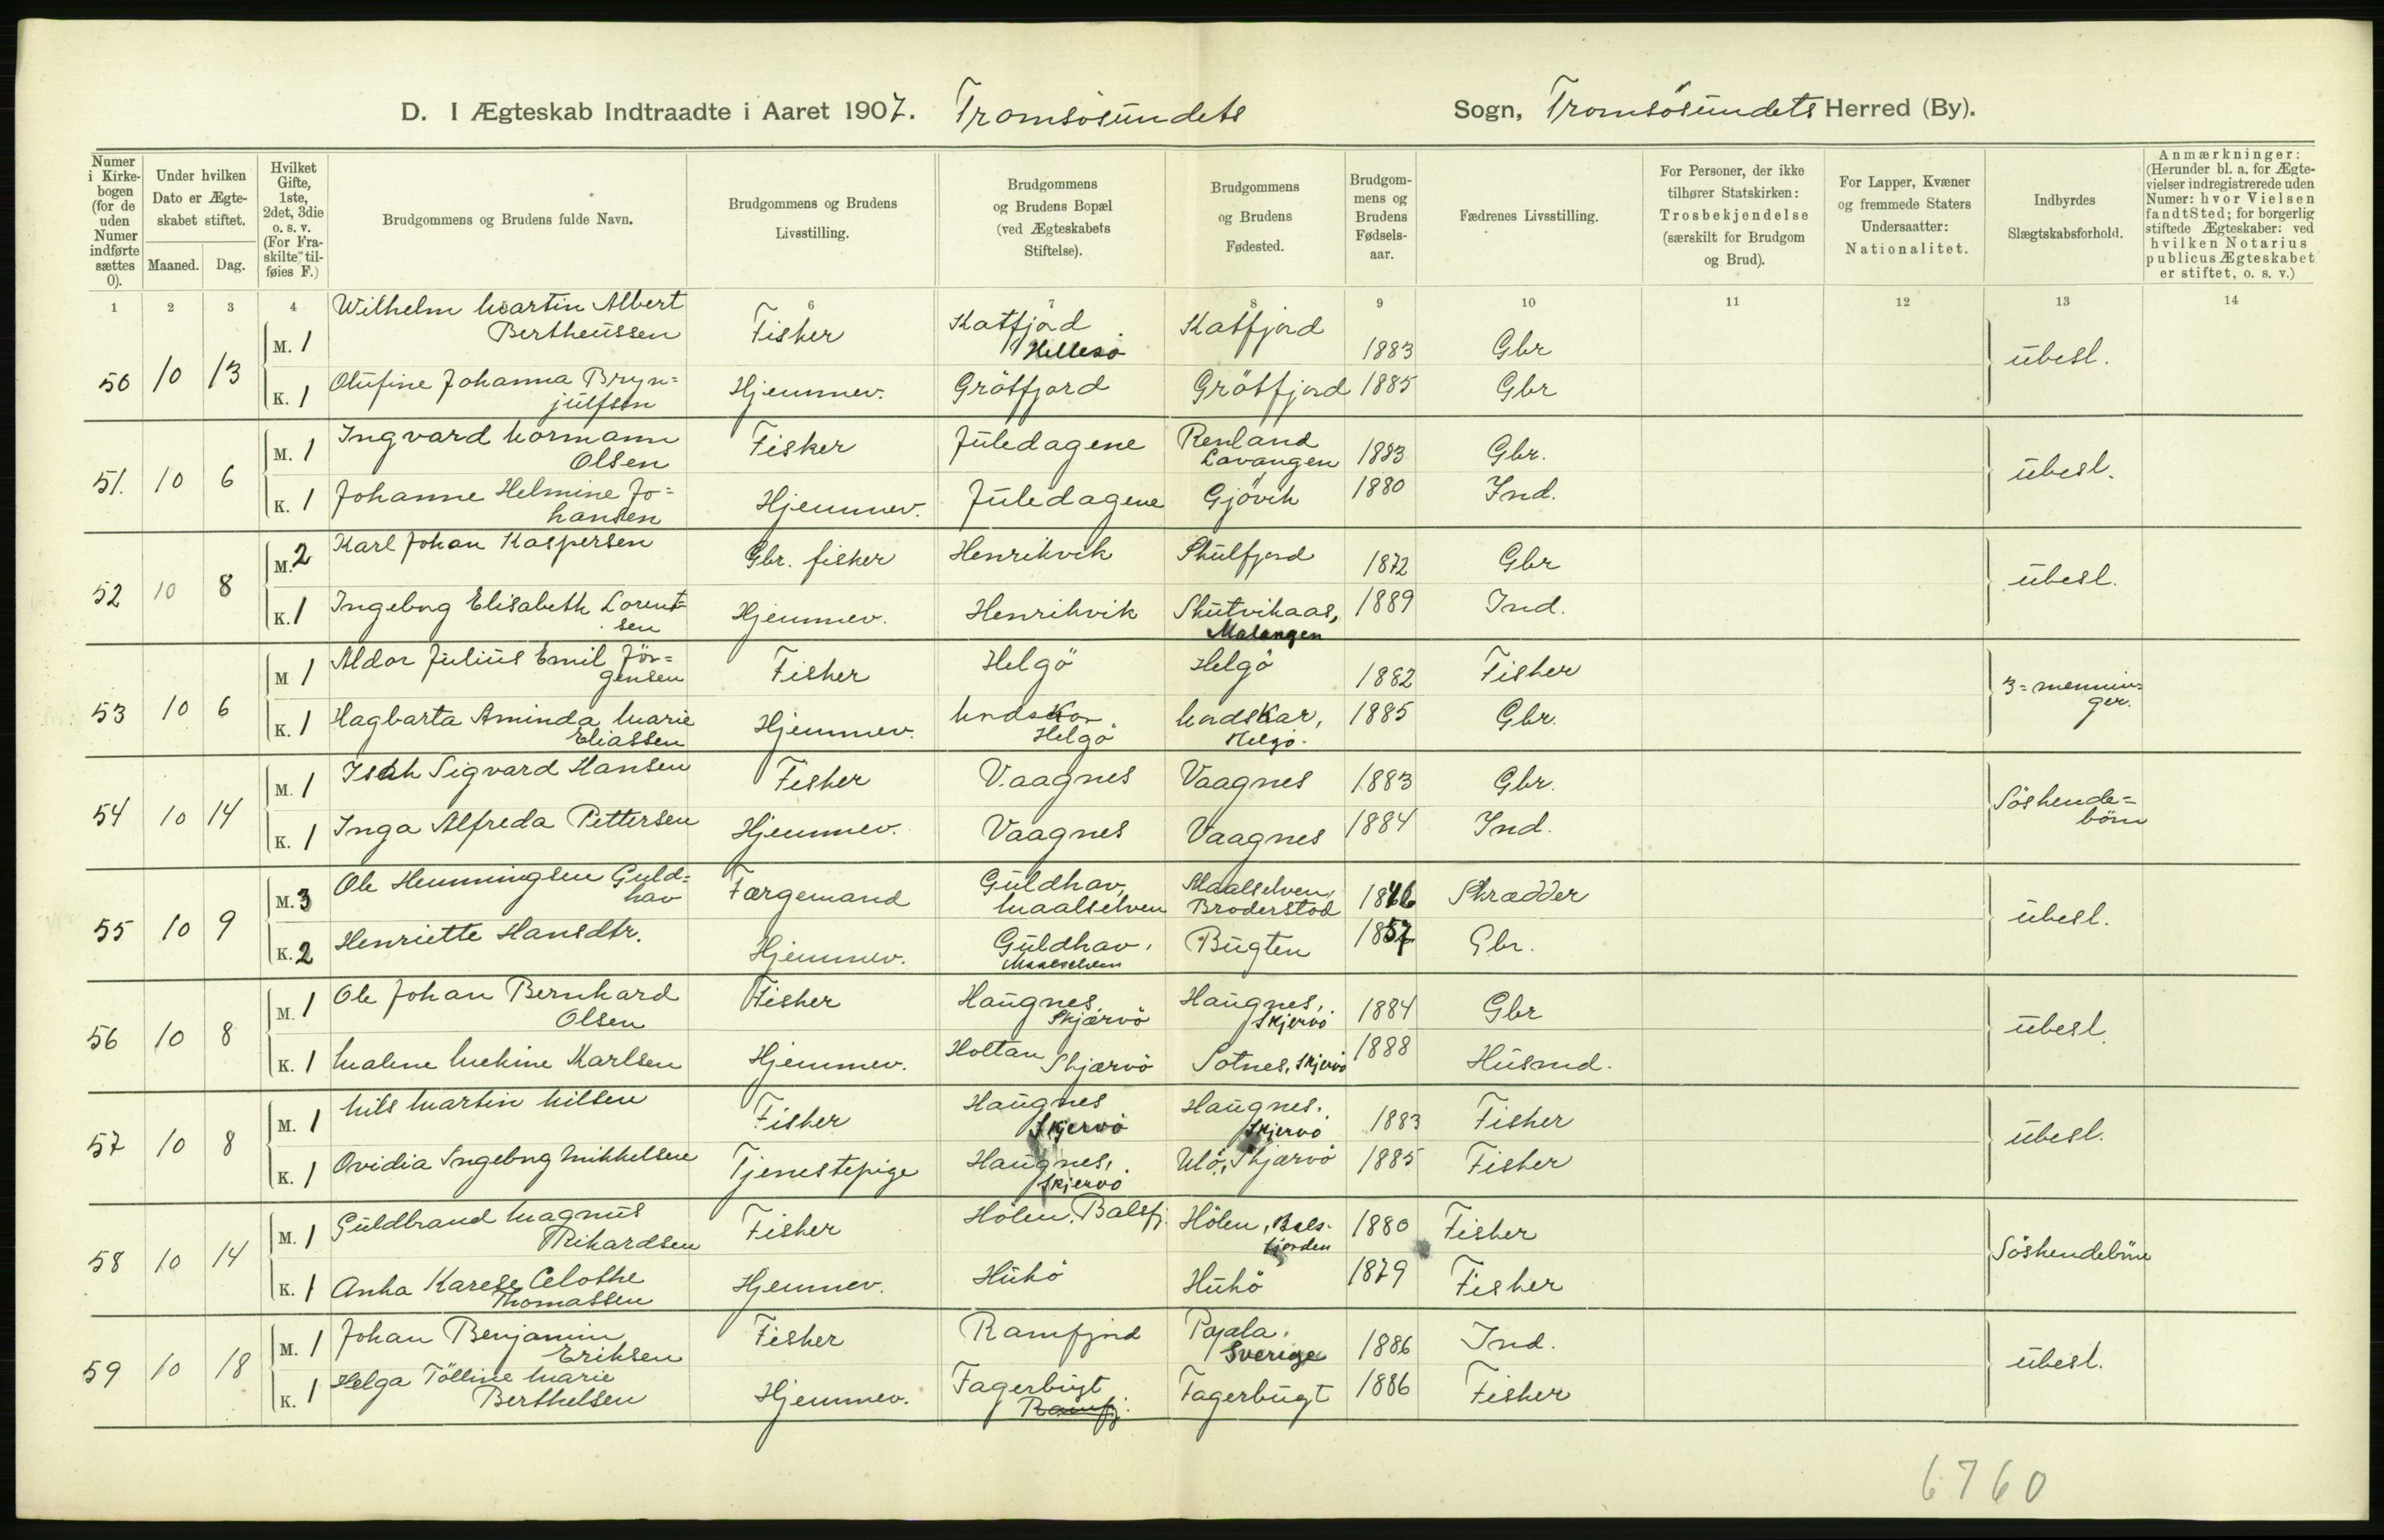 D. I Ægteskab Indtraadte i Aaret 1907. Tromsösundets Sogn, Tromsösundets Herred (By).
Numer i Kirkebogen (for de uden Numer indførte sættes 0).
Under hvilken Dato er Ægteskabet stiftet.
Maaned. Dag.
Hvilket Gifte, 1ste, 2det, 3die o. s. v. (For Fraskilte tilføies F.)
Brudgommens og Brudens fulde Navn.
Brudgommens og Brudens Livsstilling.
Brudgommens og Brudens Bopæl (ved Ægteskabets Stiftelse).
Brudgommens og Brudens Fødested.
Brudgommens og Brudens Fødselsaar.
Fædrenes Livsstilling.
For Personer, der ikke tilhører Statskirken: Trosbekjendelse (særskilt for Brudgom og Brud).
For Lapper, Kvæner og fremmede Staters Undersaatter: Nationalitet.
Indbyrdes Slægtskabsforhold.
Anmærkninger: (Herunder bl. a. for Ægtevielser indregistrerede uden Numer: hvor Vielsen fandt Sted; for borgerlig stiftede Ægteskaber: ved hvilken Notarius publicus Ægteskabet er stiftet, o. s. v.)
1 2 3 4 6 7 8 9 10 11 12 13 14
50 10 13 M. 1 Wilhelm Martin Albert Bertheussen Fisker Katfjord Hillesö Katfjord 1883 Gbr ubesl.
K. 1 Olufine Johanna Brynjulfsen Hjemmev. Grötfjord Grötfjord 1885 Gbr
51. 10 6 M. 1 Ingvard Normann Olsen Fisker Juledagene Renland Lavangen 1883 Gbr. ubesl.
K. 1 Johanne Helmine Johansen Hjemmev. Juledagene Gjövik 1880 Ind.
52 10 8 M. 2 Karl Johan Kaspersen Gbr. fisker Henrikvik Skulfjord 1872 Gbr ubesl.
K. 1 Ingeborg Elisabeth Lorentsen Hjemmev. Henrikvik Skutvikaas, Malangen 1889 Ind.
53 10 6 M 1 Aldor Julius Emil Jörgensen Fisker Helgö Helgö 1882 Fisker 3=menninger.
K. 1 Hagbarta Aminda Marie Eliassen Hjemmev. Nordskar, Helgö Nordskar, Helgö. 1885 Gbr.
54 10 14 M. 1 Isak Sigvard Hansen Fisker Vaagnes Vaagnes 1883 Gbr. Söskendebörn
K. 1 Inga Alfreda Pettersen Hjemmev. Vaagnes Vaagnes 1884 Ind.
55 10 9 M. 3 Ole Henningsen Guldhav Færgemand Guldhav, Maalselven Maalselven, Broderstad 1846 Skrædder ubesl.
K. 2 Henriette Hansdtr. Hjemmev. Guldhav, Maalselven Bugten 1857 Gbr.
56 10 8 M. 1 Ole Johan Bernhard Olsen Fisker Haugnes, Skjærvö Haugnes, Skjervö 1884 Gbr ubesl.
K. 1 Malene Mekine Karlsen Hjemmev. Hottan Skjærvö Sotnes, Skjervö 1888 Husmd.
57 10 8 M. 1 Nils Martin Nilsen Fisker Haugnes Skjervö Haugnes. Skjervö 1883 Fisker ubesl.
K. 1 Ovidia Ingeborg Mikkelsen Tjenestepige Haugnes, Skjervö Ulö, Skjærvö 1885 Fisker
58 10 14 M. 1 Guldbrand Magnus Rikardsen Fisker Hölen, Balsfj. Hölen, Balsfjorden 1880 Fisker Söskendebörn
K. 1 Anna Karese Celothe Thomassen Hjemmev. Hukö Hukö 1879 Fisker
59 10 18 M. 1 Johan Benjamin Eriksen Fisker Ramfjord Pajala, Sverige 1886 Ind. ubesl.
K. 1 Helga Tölline Marie Berthelsen Hjemmev. Fagerbugt Ramfj. Fagerbugt 1886 Fisker
6760